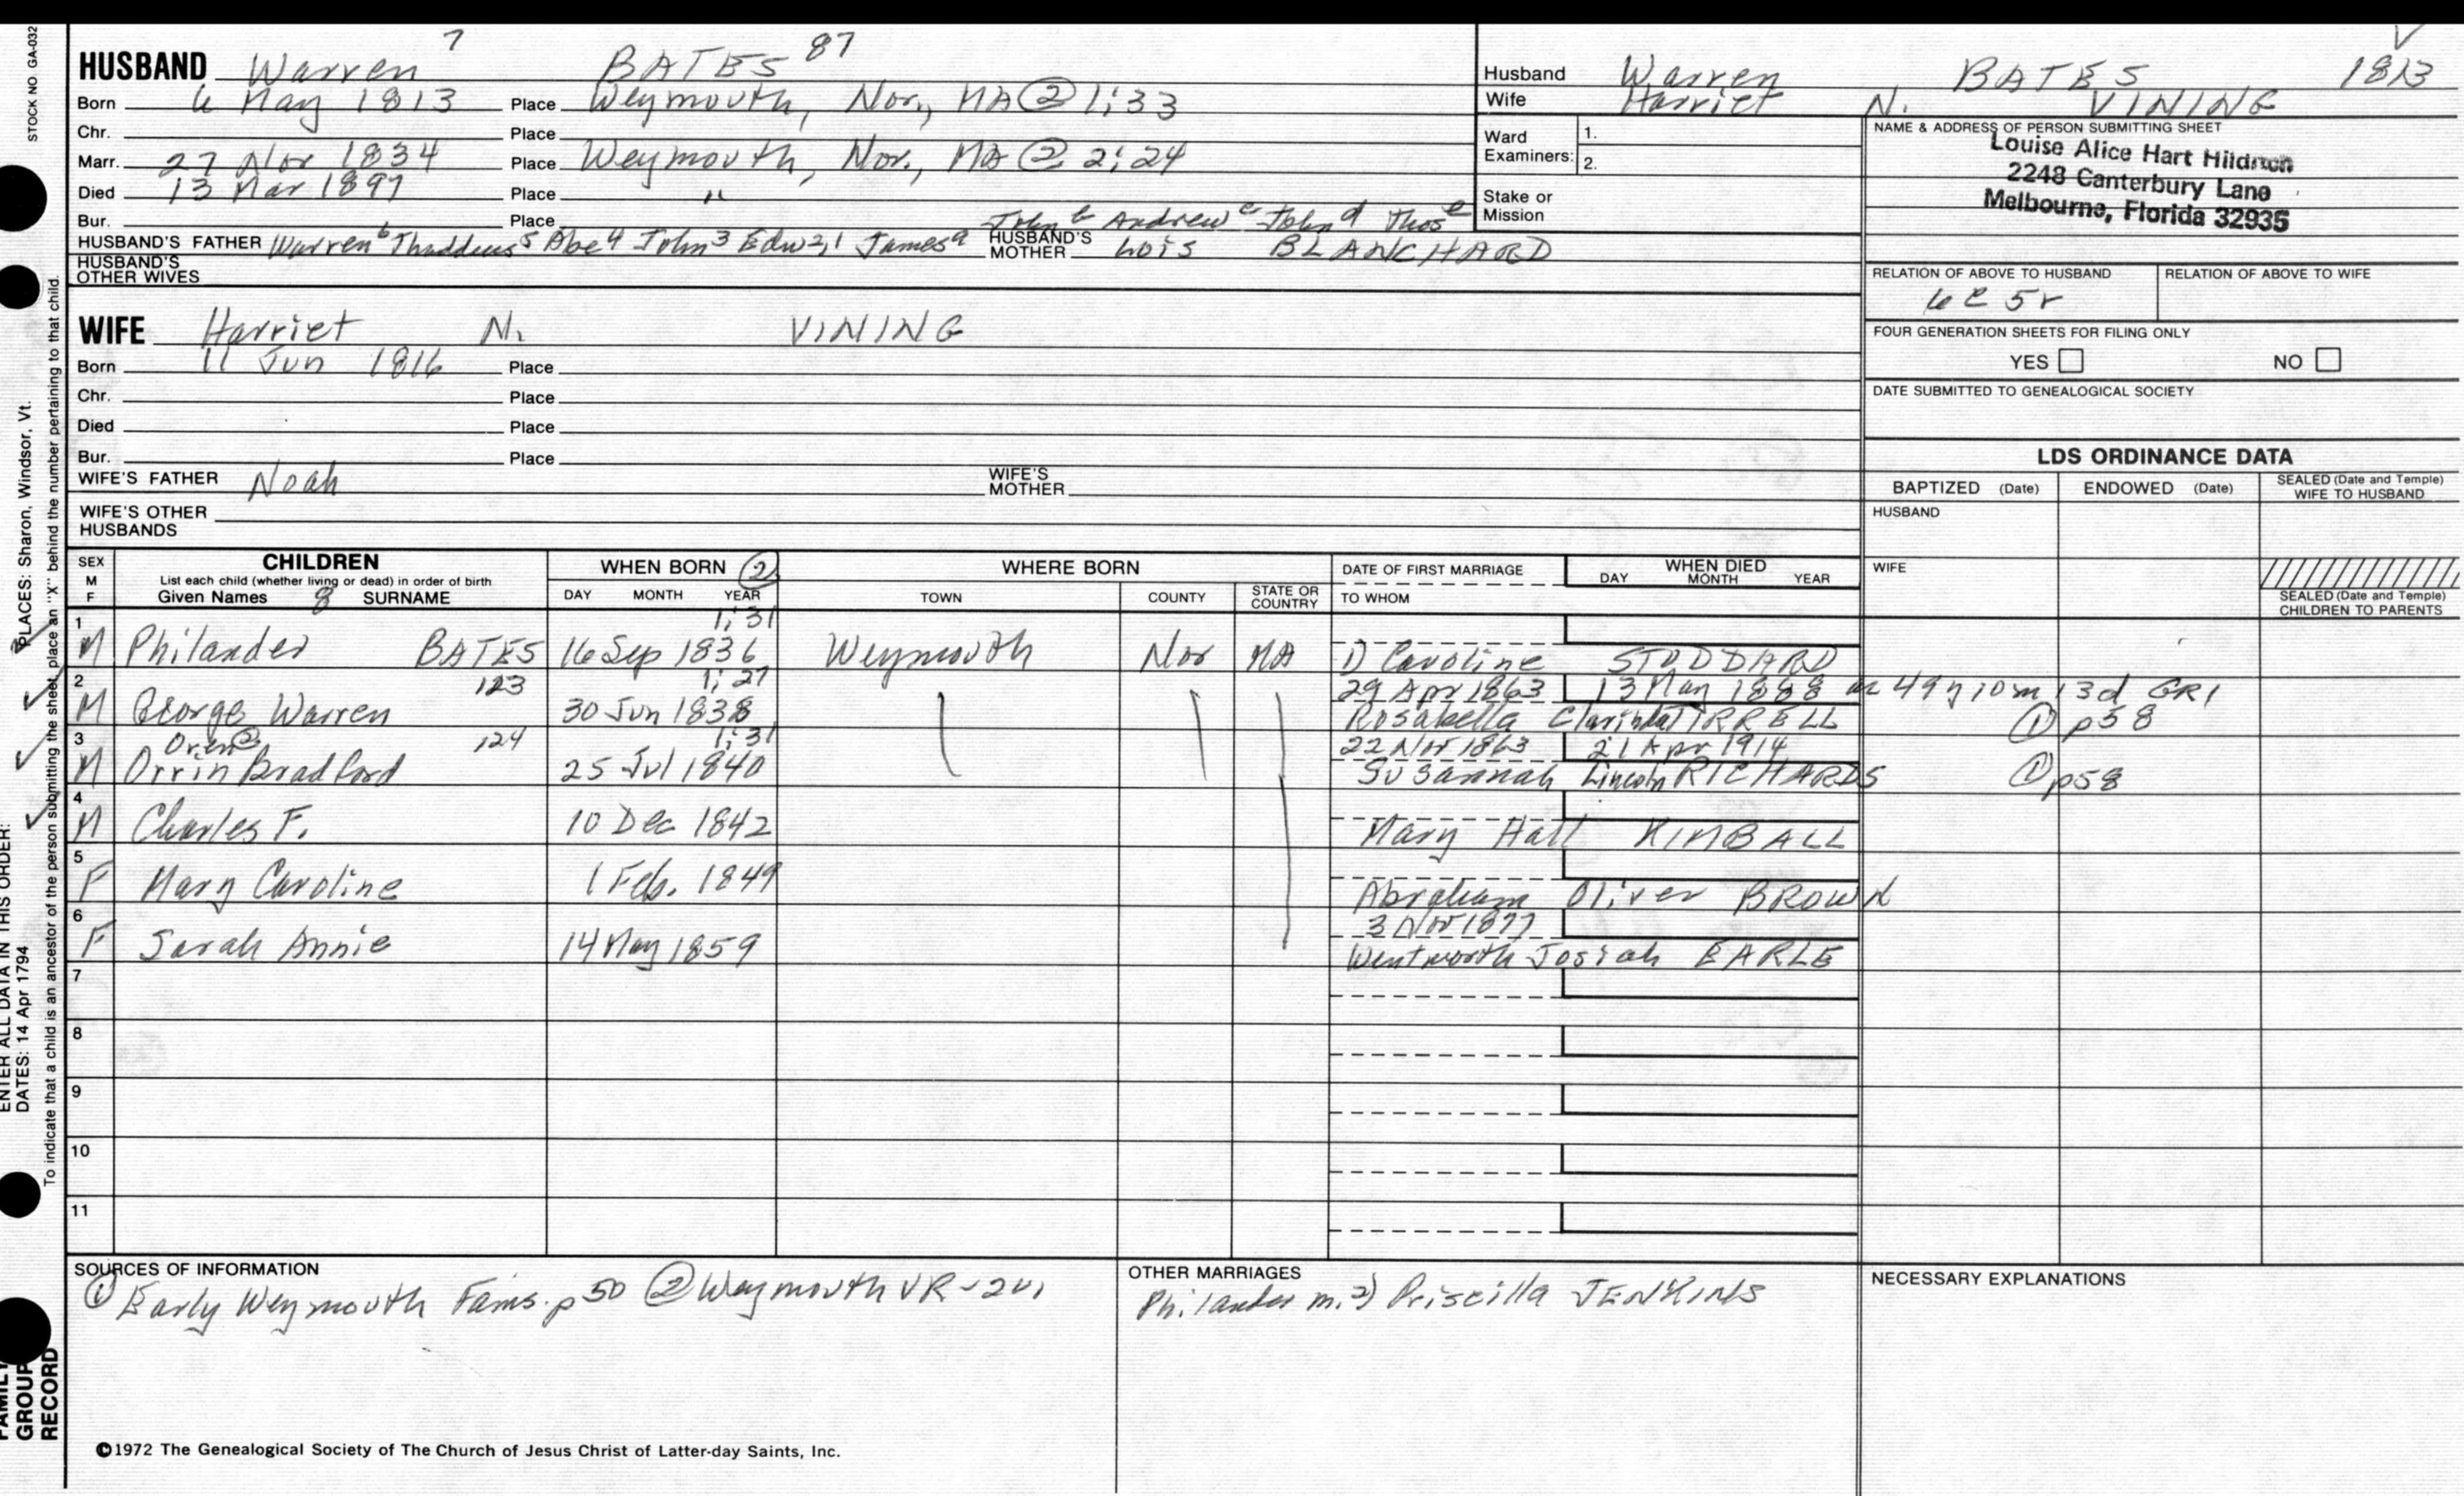 STOCK NO. GA-032
HUSBAND Warren 7 BATES 87
Born 6 May 1813 Place Weymouth, Nor, MA @ 1:33
Chr. Place
Marr. 27 Nov 1834 Place Weymouth, Nor., MA @ 2:24
Died 13 Mar 1897 Place "
Bur. Place John b Andrew c John d Thos e
HUSBAND'S FATHER Warren 6 Thaddeus 5 Abe 4 John 3 Edw 2,1 James a HUSBAND'S MOTHER Lois BLANCHARD
HUSBAND'S OTHER WIVES
WIFE Harriet N. VINING
Born 11 Jun 1816 Place
Chr. Place
Died Place
Bur. Place
WIFE'S FATHER Noah WIFE'S MOTHER
WIFE'S OTHER HUSBANDS
Husband Warren BATES 1813
Wife Harriet N. VINING
Ward Examiners: 1. 2.
Stake or Mission
NAME & ADDRESS OF PERSON SUBMITTING SHEET
Louise Alice Hart
2248 Canterbury Lane
Melbourne, Florida 32935
RELATION OF ABOVE TO HUSBAND RELATION OF ABOVE TO WIFE
6c 5r
FOUR GENERATION SHEETS FOR FILING ONLY
YES NO
DATE SUBMITTED TO GENEALOGICAL SOCIETY
LDS ORDINANCE DATA
BAPTIZED (Date) ENDOWED (Date) SEALED (Date and Temple) WIFE TO HUSBAND
HUSBAND
WIFE
SEALED (Date and Temple) CHILDREN TO PARENTS
SEX M F CHILDREN WHEN BORN 2 WHERE BORN DATE OF FIRST MARRIAGE WHEN DIED
List each child (whether living or dead) in order of birth DAY MONTH YEAR
Given Names 8 SURNAME DAY MONTH YEAR TOWN COUNTY STATE OR COUNTRY TO WHOM
1 1:31
M Philander BATES 16 Sep 1836 Weymouth Nor MA 1) Caroline STODDARD
2 123 1:27 29 Apr 1863 13 May 1888 ae 49y 10m 13d GR1
M George Warren 30 Jun 1838 Rosabella Clarinda TIRRELL 1 p58
3 Oren @ 124 1:31 22 Nov 1863 21 Apr 1914
M Orrin Bradford 25 Jul 1840 Susannah Lincoln RICHARDS 1 p58
4
M Charles F. 10 Dec 1842 Mary Hall KIMBALL
5
F Mary Caroline 1 Feb. 1849 Abraham Oliver BROWN
6 3 Nov 1877
F Sarah Annie 14 May 1859 Wentworth Josiah EARLE
7
8
9
10
11
SOURCES OF INFORMATION
1 Early Weymouth Fams. p 50 2 Weymouth VR-
OTHER MARRIAGES
Philander m. 2) Priscilla JENKINS
NECESSARY EXPLANATIONS
©1972 The Genealogical Society of The Church of Jesus Christ of Latter-day Saints, Inc.
FAMILY GROUP RECORD
ENTER ALL DATA IN THIS ORDER:
DATES: 14 Apr 1794
PLACES: Sharon, Windsor, Vt.
To indicate that a child is an ancestor of the person submitting the sheet, place an "X" behind the number pertaining to that child.